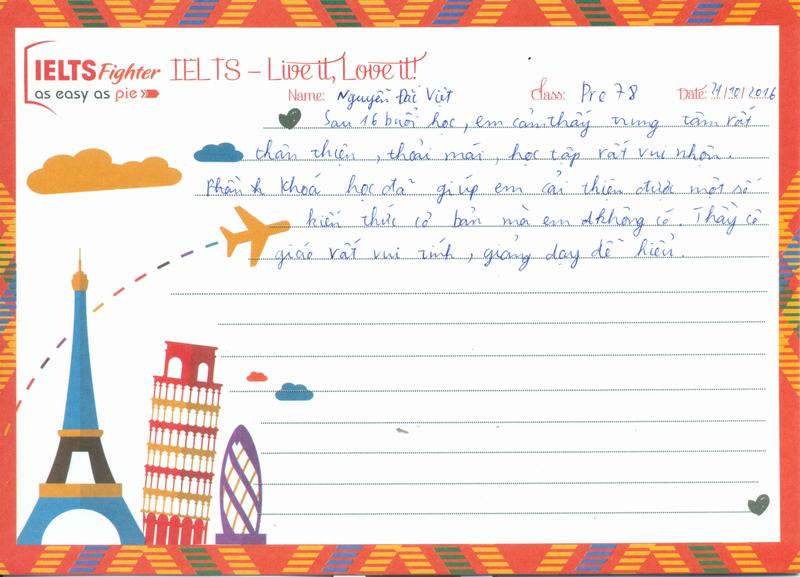 IELTS Fighter
as easy as pie
IELTS – Live it, Love it!
Name: Nguyễn Đắc Việt Class: Pre 78 Date: 21/10/2016
Sau 16 buổi học, em cảm thấy trung tâm rất
thân thiện, thoải mái, học tập rất vui nhộn.
Khoá học đã giúp em cải thiện được một số
kiến thức cơ bản mà em không có. Thầy cô
giáo rất vui tính, giảng dạy dễ hiểu.